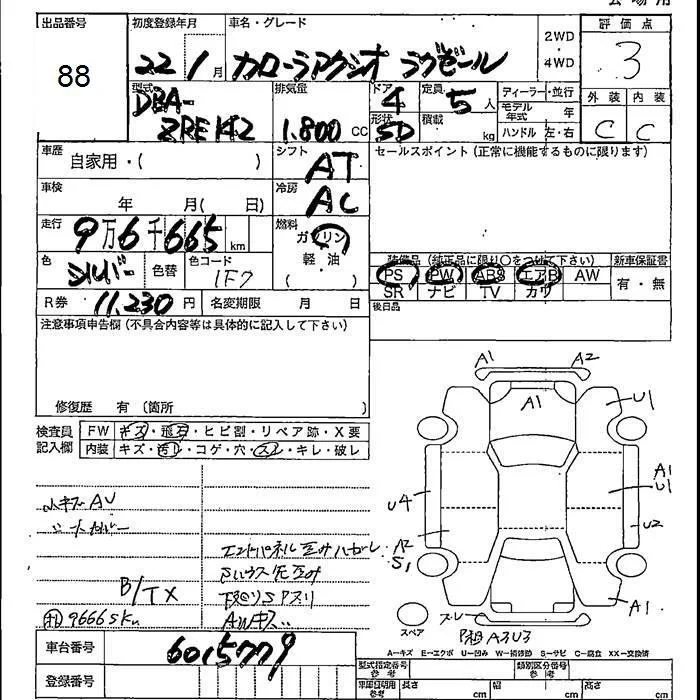 会場用
出品番号
88
初度登録年月
22 1 月
車名・グレード
カローラアクシオ ラグゼール
2WD
・
4WD
評価点
3
外装 内装
C C
型式
DBA-
ZRE142
排気量
1.800 CC
ドア
4
形状
SD
定員
5 人
積載
kg
ディーラー・並行
モデル年式 年
ハンドル 左・右
車歴
自家用・( )
シフト
AT
セールスポイント(正常に機能するものに限ります)
車検
年 月( 日)
冷房
AC
走行
9万6千665 km
燃料
ガソリン
軽・油
( )
色
シルバー
色替
色コード
1F7
装備品(純正品に限り○をつけて下さい)
PS PW ABS エアB AW
SR ナビ TV カワ
新車保証書
有・無
R券 11,230 円
名変期限 月 日
後日品
注意事項申告欄(不具合内容等は具体的に記入して下さい)
修復歴 有 〔箇所 〕
検査員
記入欄
FW キズ・飛石・ヒビ割・リペア跡・X要
内装 キズ・汚れ・コゲ・穴・スレ・キレ・破レ
小キズ AU
シートカバー
エンドパネル歪みハガレ
B/TX
下回りSアリ
AWキズ
9666 5km
A1
A2
A1
U1
A1
U1
U4
U2
A2
S1
A1
スレ
スペア
A3U3
A-キズ E-エクボ U-凹み W-補修跡 S-サビ C-腐食 XX-交換済
車台番号
6015779
登録番号
型式指定番号
参考
類別区分番号
参考
車庫証明用
参考
長さ cm
幅 cm
高さ cm